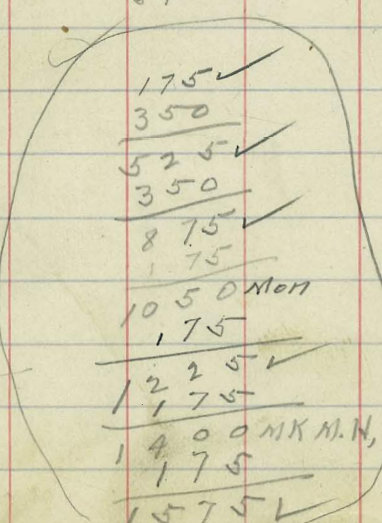 175 ✓
350
525 ✓
350
875 ✓
175
1050 Mon
175
1225 ✓
175
1400 MK M.H,
175
1575 ✓